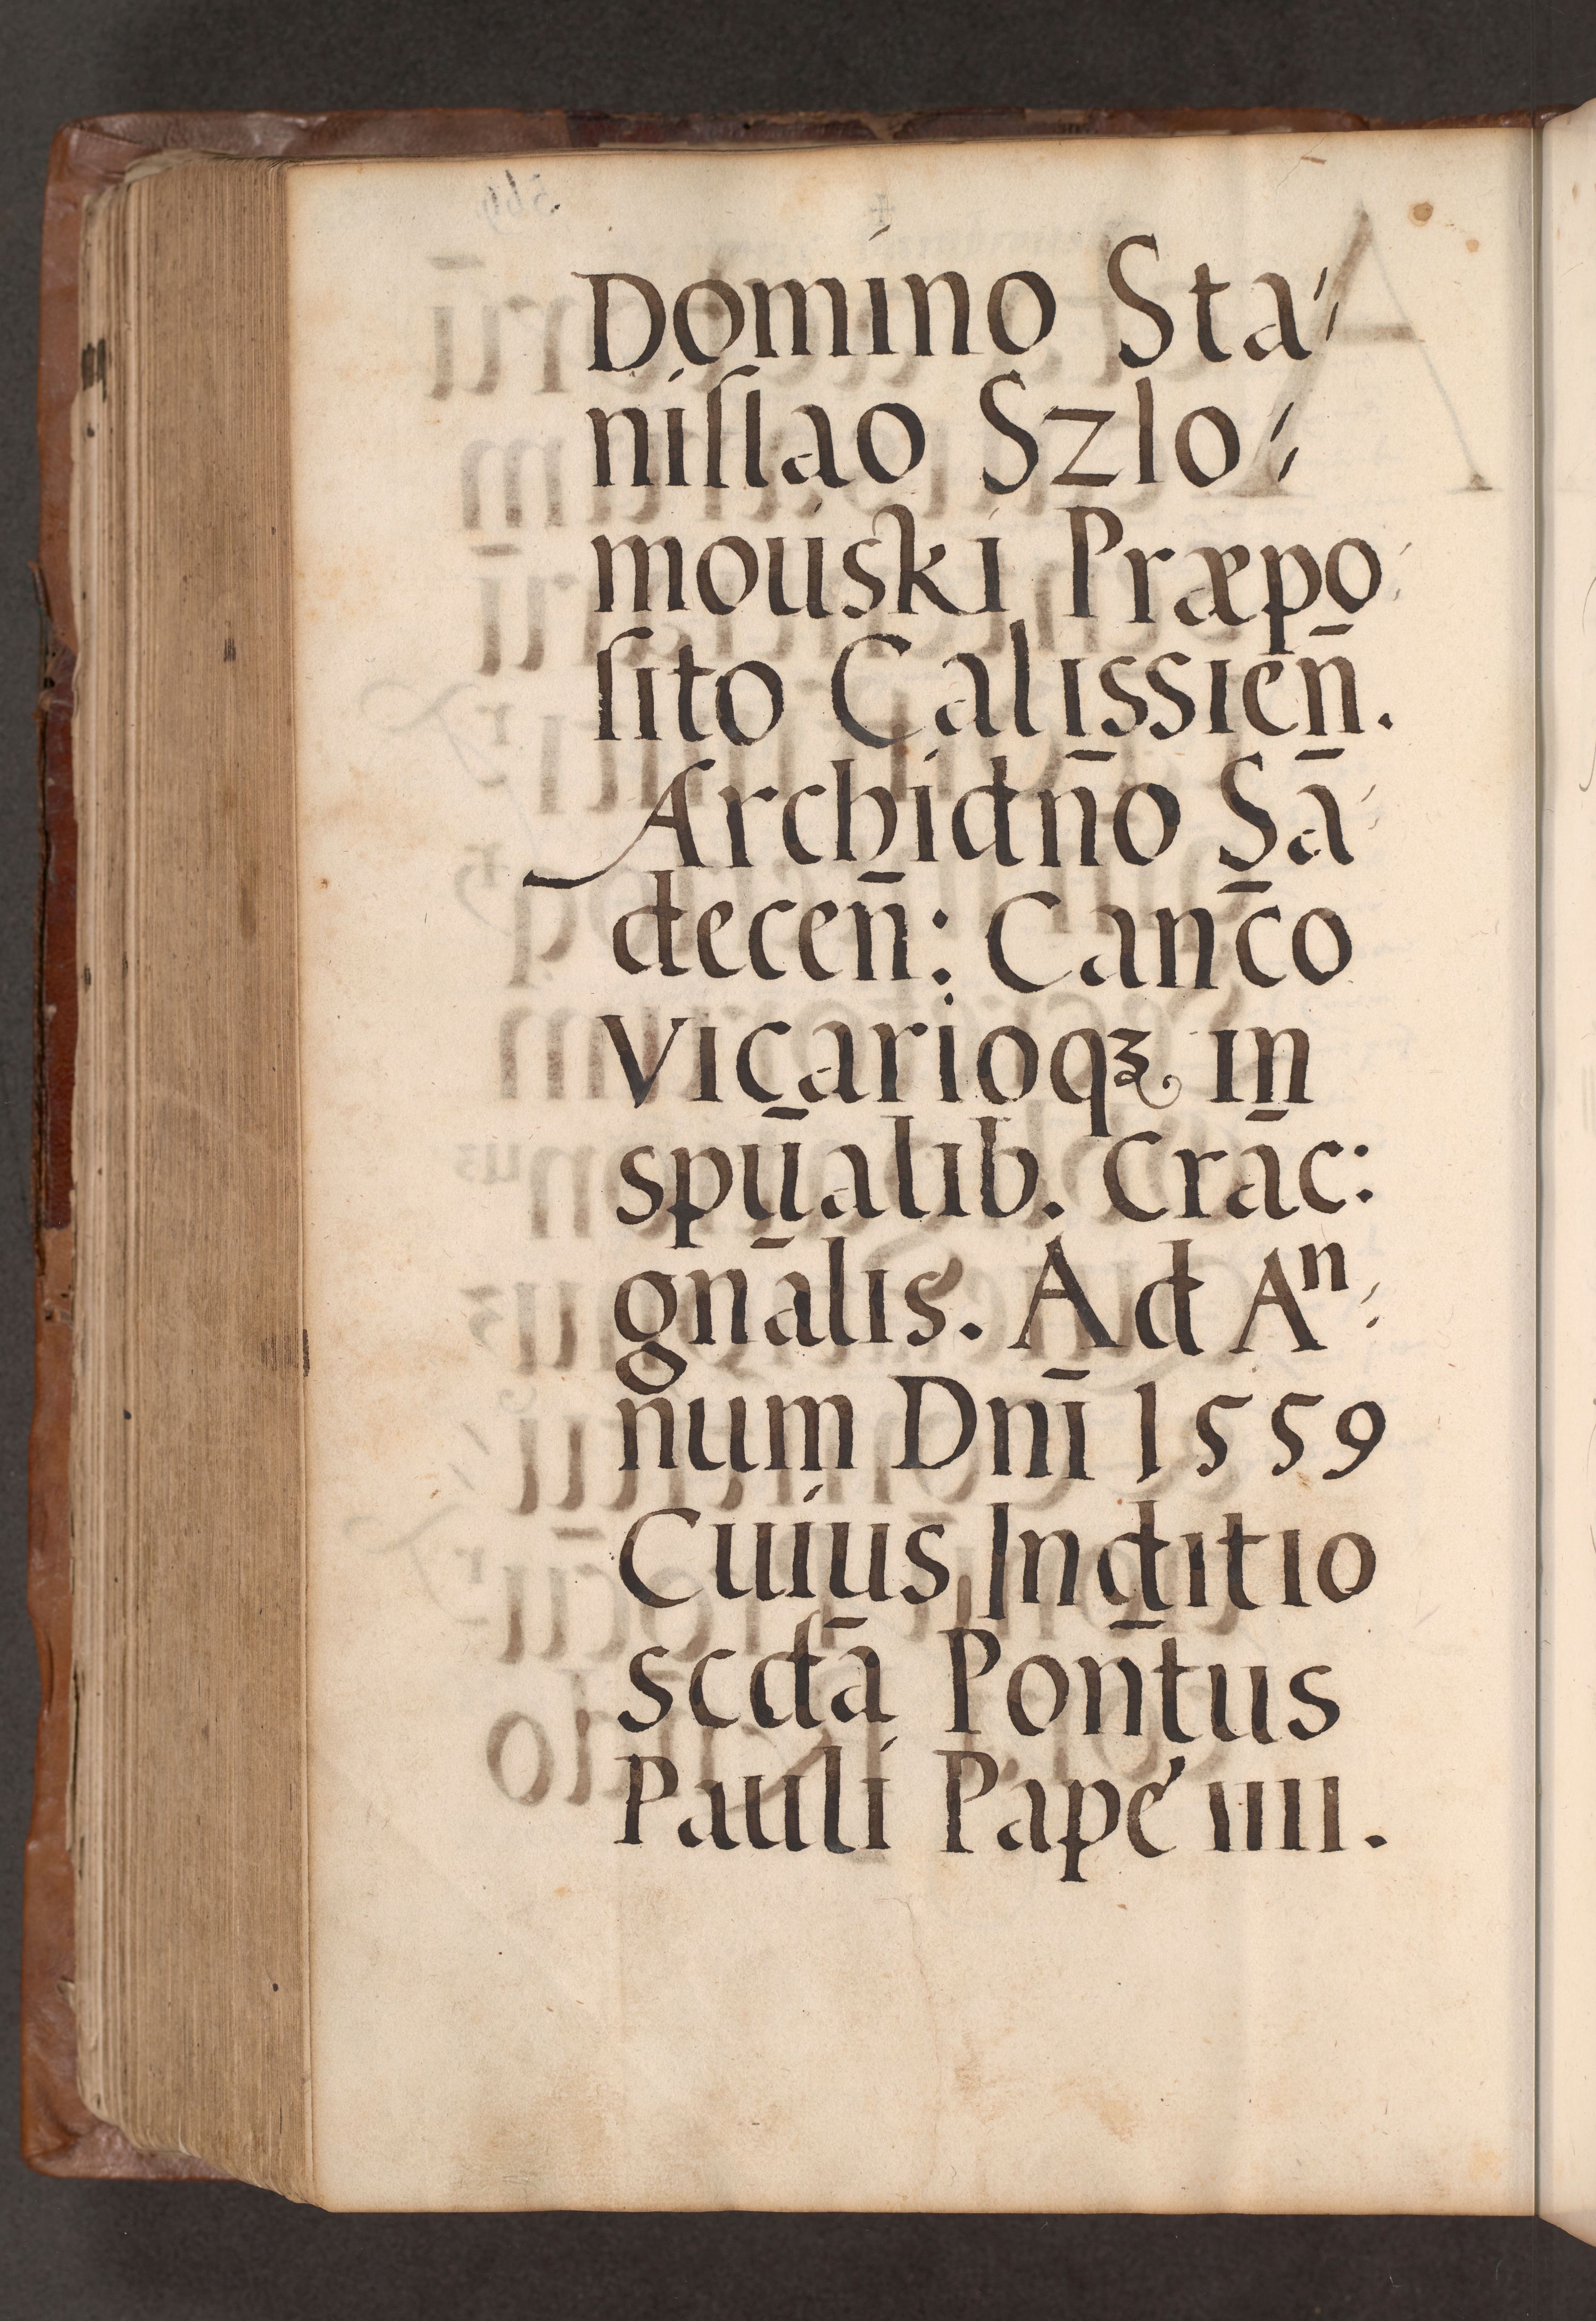 Domino Sta⸗
niſlao Szlo⸗
mouski Præpo⸗
ſito Calissien̄.
Archidn̄o Sā⸗
decen̄: Can̄co
Vicarioqꝫ in
spūalib. Crāc:
gn̄alis. Ad Aⁿ⸗
num Dnī 1559
Cuius Inditio
scdā Pon̄tus
Pauli Papé iiii.